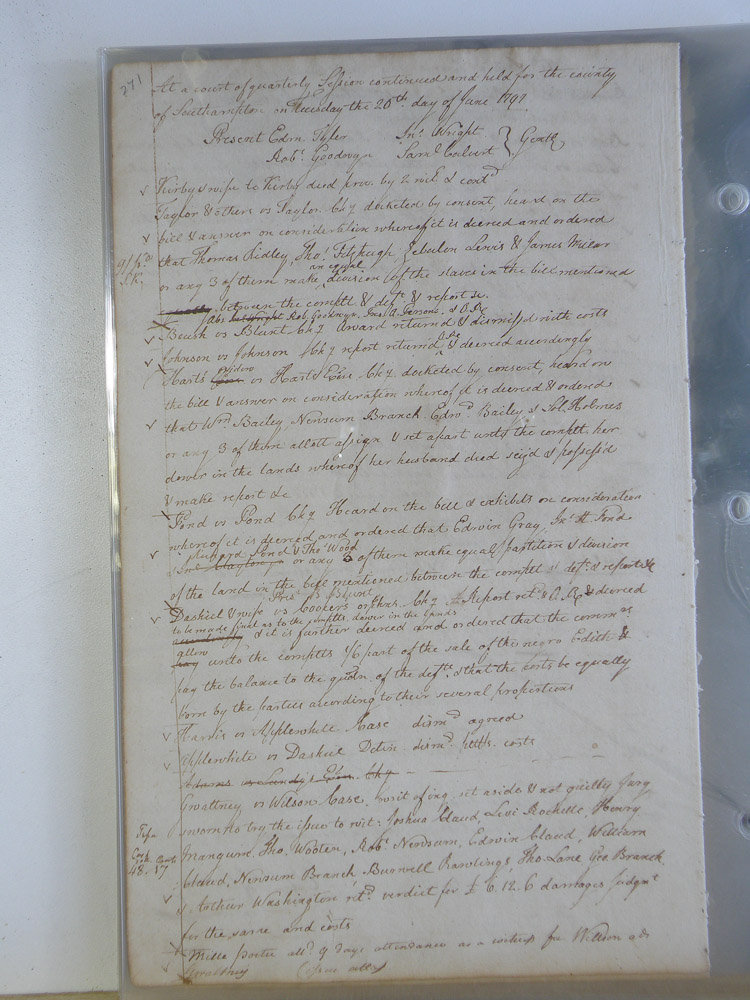 271
At a court of quarterly Session continued and held for the county
of Southampton on Tuesday the 20th day of June 1797
Present Edm. Tyler Jno. Wright
Robt. Goodwyn Saml. Calvert } Gentn.
Kirby & wife to Kirby deed prov. by 2 wit. & contd.
Taylor & others vs Taylor Chy docketed by consent, heard on the
bill & answer on consideration whereof it is decreed and ordered
that Thomas Ridley, Thos. Fitzhugh Zebulon Lewis & James Miller
or any 3 of them make an equal division of the slaves in the bill mentioned
between the complt & deft. & report &c.
Abs Wright Rob. Goodwyn
Blunt Chy award returnd & dismissd with costs
Johnson vs Johnson Chy report returnd & decreed accordingly
Hart's widow vs Hart's Exor. Chy docketed by consent, heard on
the bill & answer on consideration whereof it is decreed & ordered
that Wm. Bailey, Newsum Branch Edwd. Bailey & Sol. Holmes
or any 3 of them allott assign & set apart unto the complt. her
dower in the lands whereof her husband died seiz'd & possess'd
& make report &c
Pond vs Pond Chy Heard on the bill & exhibits on consideration
whereof it is decreed and ordered that Edwin Gray, Jno. H Pond
Pond & Thos. Wood
or any 3 of them make equal partition & division
of the land in the bill mentioned between the complt & deft. & report &c
Blunt
Daskiel & wife vs orphns. Chy Report retd. & decreed
to be made final as to the complts. dower in the lands
& it is further decreed and ordered that the commrs
allow
pay unto the complts 1/6 part of the sale of the negro Edith &
pay the balance to the guardn. of the defts. & that the costs be equally
born by the parties according to their several proportions
Harris vs Applewhite Case dismd. agreed
Applewhite vs Daskiel Detin dismd. costs
Adams vs Exor. Chy
Gwaltney vs Wilson Case, writ of inq. set aside & not guilty Jury
sworn to try the issue to wit: Joshua Claud Levi Rochelle, Henry
Manguim, Tho. Wooten, Robt. Newsum, Edwin Claud, William
Claud, Newsum Branch, Burwell Rawlings, Tho. Lane Geo Branch
& Arthur Washington retd. verdict for £ 6.12.6 damages judgmt
for the same and costs
Mills Porter alld. 9 days attendance as a witness for Willson ads
Gwaltney